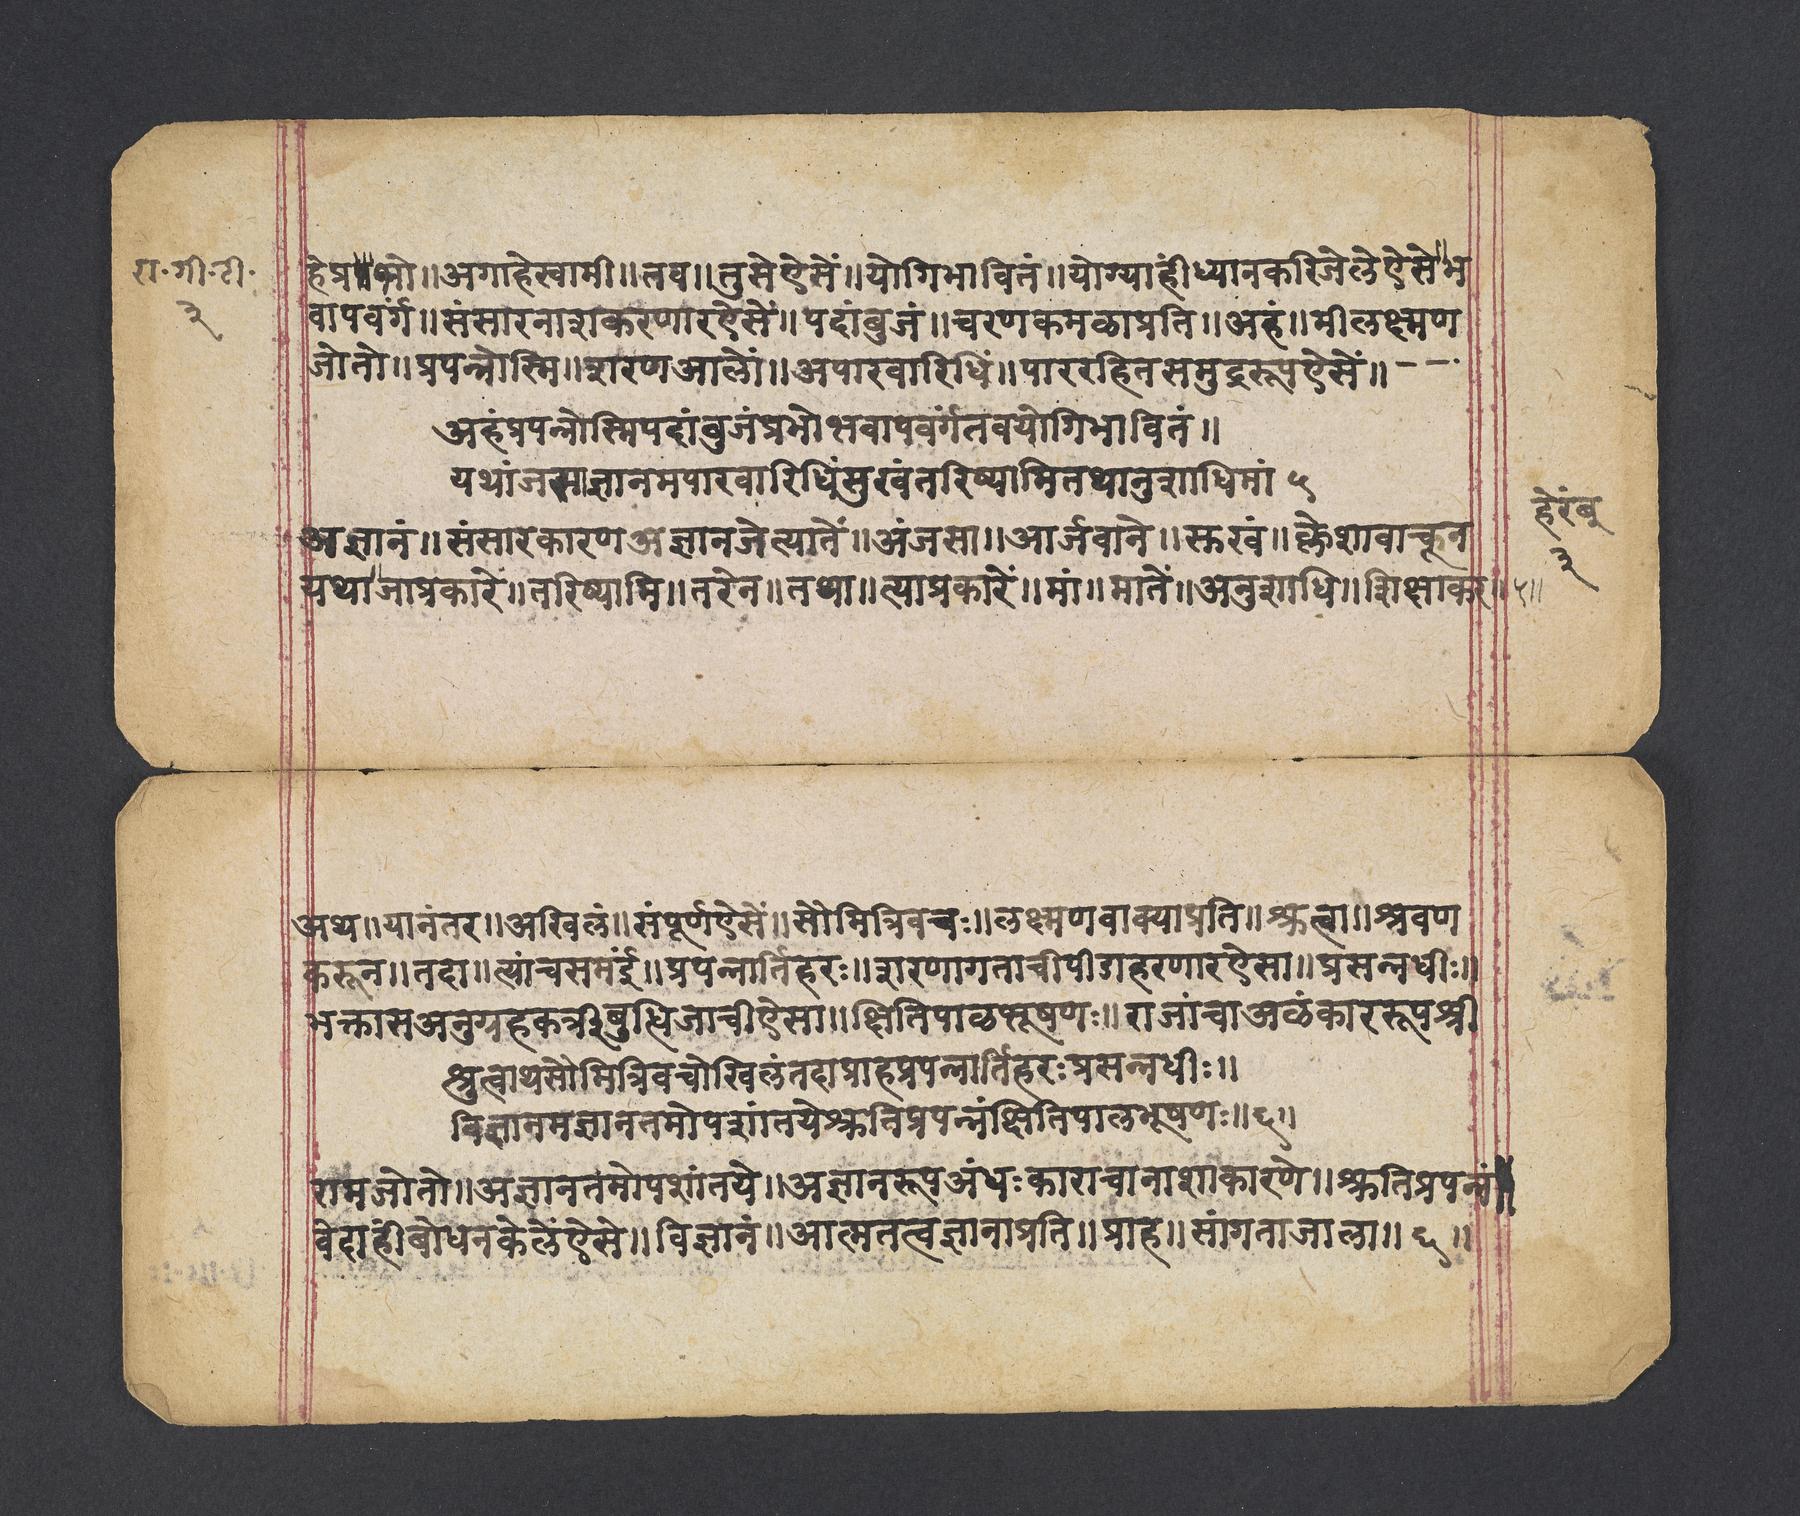 रा॰गी॰टी॰
३
हेप्रभो॥अगाहेस्वामी॥तव॥तुसेऐसें॥योगिभावितं॥योग्याहींध्यानकरिजेलेऐसे॥भ
वापवर्गं॥संसारनाशकरणारऐसें॥पदांबुजं॥चरणकमळाप्रति॥अहं॥मीलक्ष्मण
जोतो॥प्रपन्नोस्मि॥शरणआलों॥अपारवारिधिं॥पाररहितसमुद्ररूपऐसें॥--
अहंप्रपन्नोस्मिपदांबुजंप्रभोभवापवर्गंतवयोगिभावितं॥
यथांजसाज्ञानमपारवारिधिंसुखंतरिष्यामितथानुशाधिमां ५
हेरंब
३
अज्ञानं॥संसारकारणअज्ञानजेत्यातें॥अंजसा॥आर्जवाने॥सुखं॥क्लेशावाचून
यथा॥जाप्रकारें॥तरिष्यामि॥तरेन॥तथा॥त्याप्रकारें॥मां॥मातें॥अनुशाधि॥शिक्षाकर॥५॥
अथ॥यानंतर॥अखिलं॥संपूर्णऐसें॥सौमित्रिवचः॥लक्ष्मणवाक्याप्रति॥श्रुत्वा॥श्रवण
करून॥तदा॥त्यांचसमंई॥प्रपन्नार्तिहरः॥शरणागताचीपीडाहरणारऐसा॥प्रसन्नधीः॥
भक्तासअनुग्रहकर्त्रीबुद्धिजाचीऐसा॥क्षितिपाळभूषणः॥राजांचाअळंकाररूपश्री
श्रुत्वाथसौमित्रिवचोखिलंतदाप्राहप्रपन्नार्तिहरःप्रसन्नधीः॥
विज्ञानमज्ञानतमोपशांतयेश्रुतिप्रपन्नंक्षितिपालभूषणः॥६॥
रामजोतो॥अज्ञानतमोपशांतये॥अज्ञानरूपअंधःकाराचानाशाकारणे॥श्रुतिप्रपन्नं॥
वेदाहींबोधनकेलेंऐसे॥विज्ञानं॥आत्मतत्वज्ञानाप्रति॥प्राह॥सांगताजाला॥६॥